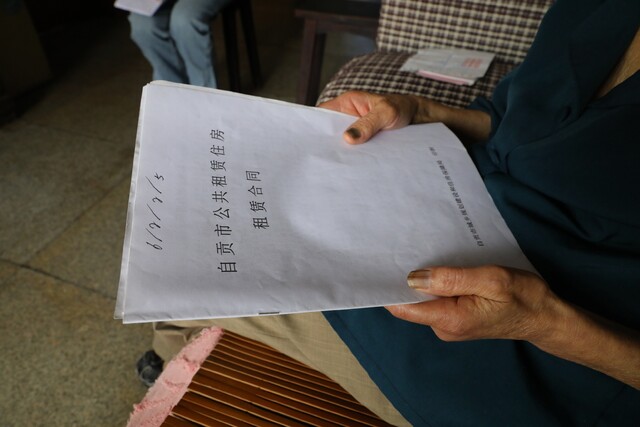 6/2/2/5
自贡市公共租赁住房
租赁合同